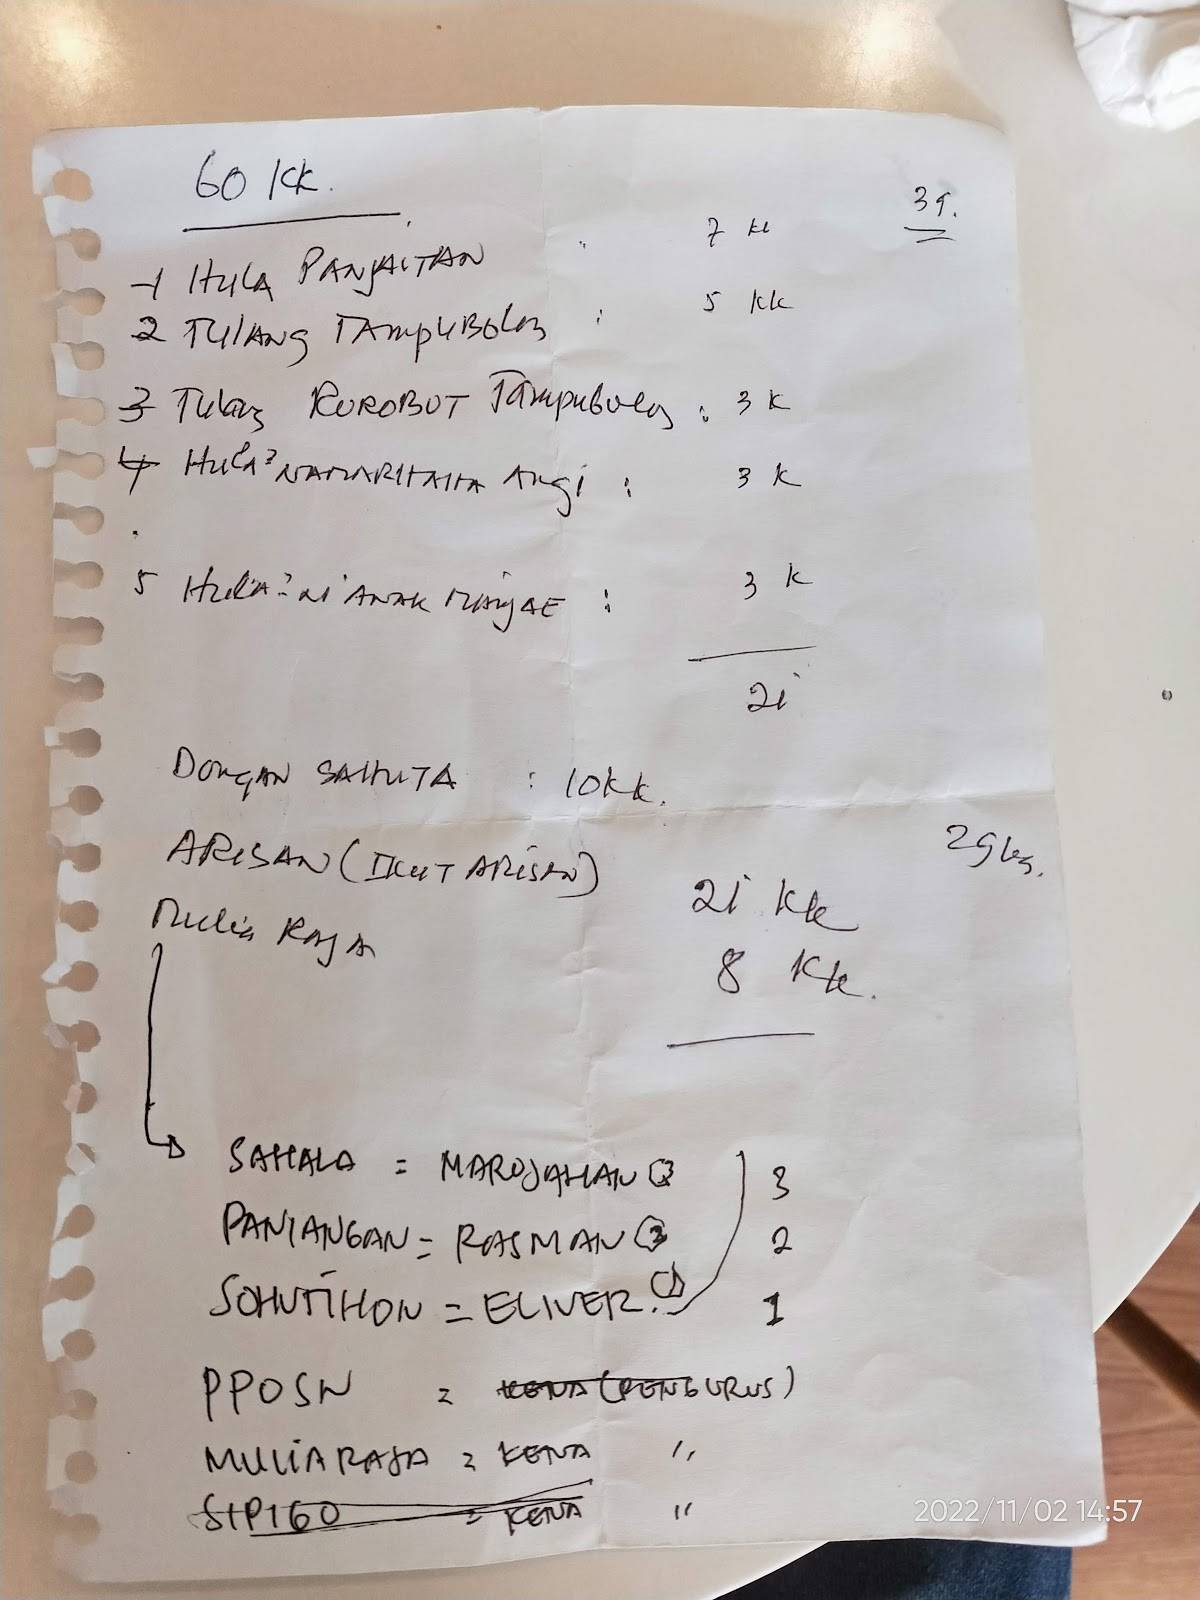 60 KK.
39.
1 HULA PANJAITAN : 7 KK
2 TULANG TAMPUBOLON : 5 KK
3 TULANG ROROBOT TAMPUBOLON : 3 K
4 HULA² NAMARHAHA ANGI : 3 K
5 HULA² NI ANAK MANJAE : 3 K
21
DONGAN SAHUTA : 10 KK.
ARISAN (IKUT ARISAN) 21 KK
MULIA RAJA 8 KK.
SAHALA = MAROJAHAN 3
PANJANGAN = RASMAN 2
SOHUTIHON = ELIVER. 1
PPOSN = KENA (PENGURUS)
MULIARAJA = KENA "
SIPIGO = KENA "
2022/11/02 14:57